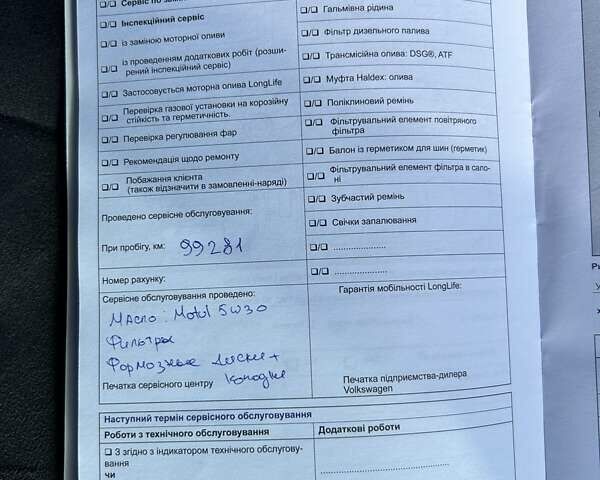 ❑/❑ Сервіс по замі
❑/❑ Інспекційний сервіс
❑/❑ із заміною моторної оливи
❑/❑ із проведенням додаткових робіт (розши-
рений інспекційний сервіс)
❑/❑ Застосовується моторна олива LongLife
❑/❑ Перевірка газової установки на корозійну
стійкість та герметичність.
❑/❑ Перевірка регулювання фар
❑/❑ Рекомендація щодо ремонту
❑/❑ Побажання клієнта
(також відзначити в замовленні-наряді)
Проведено сервісне обслуговування:
При пробігу, км: 99281
Номер рахунку:
Сервісне обслуговування проведено:
Масло: Motul 5W30
Фильтры
Формозные диски +
Печатка сервісного центру колодки
❑/❑ Гальмівна рідина
❑/❑ Фільтр дизельного палива
❑/❑ Трансмісійна олива: DSG®, ATF
❑/❑ Муфта Haldex: олива
❑/❑ Поліклиновий ремінь
❑/❑ Фільтрувальний елемент повітряного
фільтра
❑/❑ Балон із герметиком для шин (герметик)
❑/❑ Фільтрувальний елемент фільтра в сало-
ні
❑/❑ Зубчастий ремінь
❑/❑ Свічки запалювання
❑/❑ .....................
❑/❑ .....................
Гарантія мобільності LongLife:
Печатка підприємства-дилера
Volkswagen
Наступний термін сервісного обслуговування
Роботи з технічного обслуговування
Додаткові роботи
❑ З згідно з індикатором технічного обслугову-
вання
чи
........................................